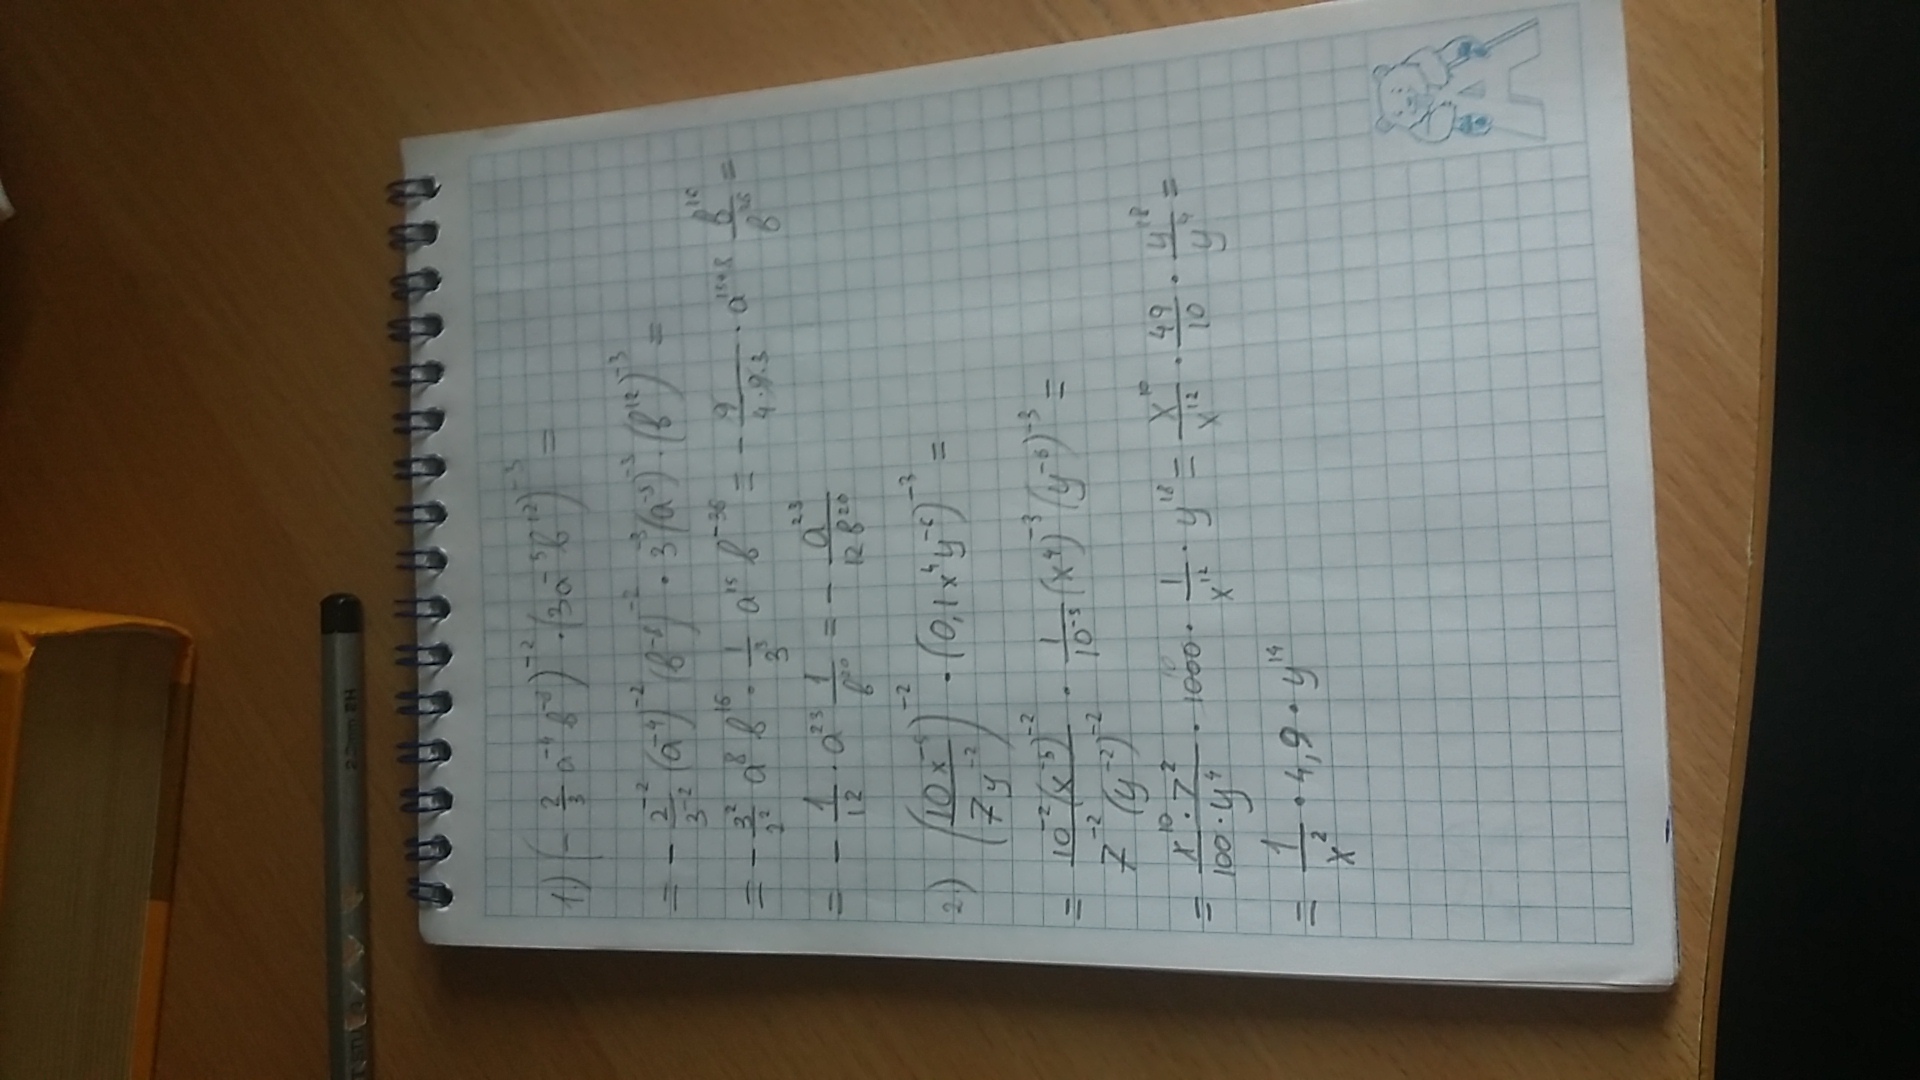 1) (-2/3 a⁻⁴ b⁻⁸)⁻² · (3a⁻⁵b¹²)⁻³ =
= - 2⁻²/3⁻² (a⁻⁴)⁻² (b⁻⁸)⁻² · 3⁻³ (a⁻⁵)⁻³ · (b¹²)⁻³ =
= - 3²/2² a⁸ b¹⁶ · 1/3³ a¹⁵ b⁻³⁶ = - 9/(4·9·3) · a¹⁵⁺⁸ b¹⁶/b³⁶ =
= - 1/12 · a²³ 1/b²⁰ = - a²³/(12b²⁰)
2) (10x⁻⁵/(7y⁻²))⁻² · (0,1x⁴y⁻⁶)⁻³ =
= 10⁻²(x⁻⁵)⁻²/(7⁻²(y⁻²)⁻²) · 1/10⁻³ (x⁴)⁻³ (y⁻⁶)⁻³ =
= x¹⁰·7²/(100·y⁴) · 1000 · 1/x¹² · y¹⁸ = x¹⁰/x¹² · 49/10 · y¹⁸/y⁴ =
= 1/x² · 4,9 · y¹⁴